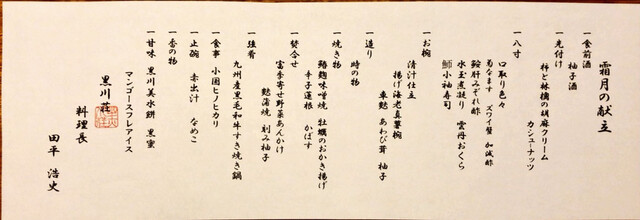 霜月の献立
一 食前酒
柚子酒
一 先付け
柿と林檎の胡麻クリーム
カシューナッツ
一 八寸
口取り色々
菊なます ズワイ蟹 加減酢
鮟肝みぞれ酢
水玉煮凝り 雲丹おくら
鰤小袖寿司
一 お椀
清汁仕立
揚げ海老真薯椀
車麩 あわび茸 柚子
一 造り
時の物
一 焼き物
鰆麹味噌焼 牡蠣のおかき揚げ
辛子蓮根 かぼす
一 焚合せ
富季寄せ野菜あんかけ
麩蒲焼 刻み柚子
一 強肴
九州産黒毛和牛すき焼き鍋
一 食事 小国ヒノヒカリ
一 止碗 赤出汁 なめこ
一 香の物
一 甘味 黒川美水餅 黒蜜
マンゴースフレアイス
黒川荘
料理長
田平 浩史